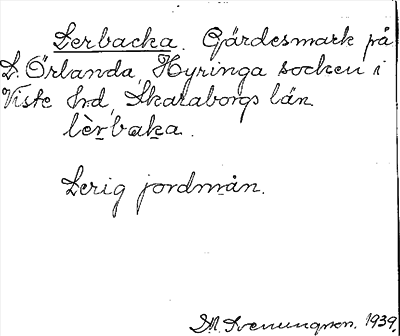 Lerbacka. Gärdesmark på
L. Örlanda, Hyringa socken i
Viste hrd, Skaraborgs län.
lèr̲baka.
Lerig jordmån.
1939.